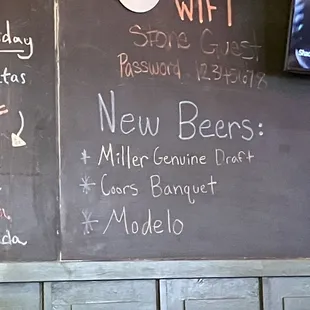 WIFI
Store Guest
Password 12345678
New Beers:
* Miller Genuine Draft
* Coors Banquet
* Modelo